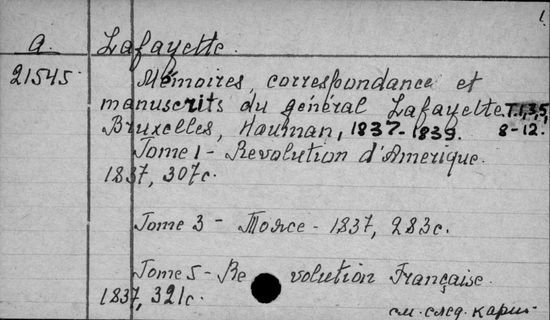 1.
A. Lafayette.
21545 Mémoires, correspondance et
manuscrits du général Lafayette. T.1,3,5,
Bruxelles, Hauman, 1837-1839. 8-12.
Tome 1 - Revolution d'Amerique.
1837, 307c.
Tome 3 - Тоже - 1837, 283c.
Tome 5 - Revolution Française.
1837, 321c.
см. след. карт.